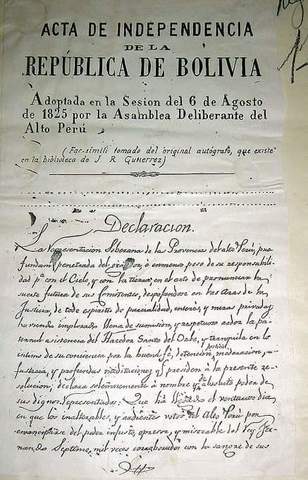 ACTA DE INDEPENDENCIA
DE LA
REPÚBLICA DE BOLIVIA
Adoptada en la Sesion del 6 de Agosto
de 1825 por la Asamblea Deliberante del
Alto Perú
(Fac-simili tomado del original autógrafo, que existe
en la biblioteca de J. R. Gutierrez)
Declaracion.
La representacion Soberana de las Provincias del alto Perú, pro
fundamte penetrada del grandor, é inmenso peso de su responsabili
dad pa con el Cielo, y con la tierra, en el acto de pronunciar la
suerte futura de sus Comitentes, despojandose en las aras de la
Justicia, de todo espiritu de parcialidad, interes, y miras privadas
haviendo implorado, llena de sumision, y respetuoso ardor la pa
ternal asistencia del Hacedor Santo del Orbe, y tranquila en lo
intimo de su conciencia por la buena fé, detencion, moderacion,
justicia, y profundas meditaciones qe presiden á la presente re
solucion, declara solemnemente á nombre y absoluto poder de
sus dignos representados: Que há llegado el venturoso dia,
en que los inalterables, y ardientes votos del Alto Perú por
emanciparse del poder injusto, opresor, y miserable del Rey Fer
nando Septimo, mil veces corroborados con la sangre de sus